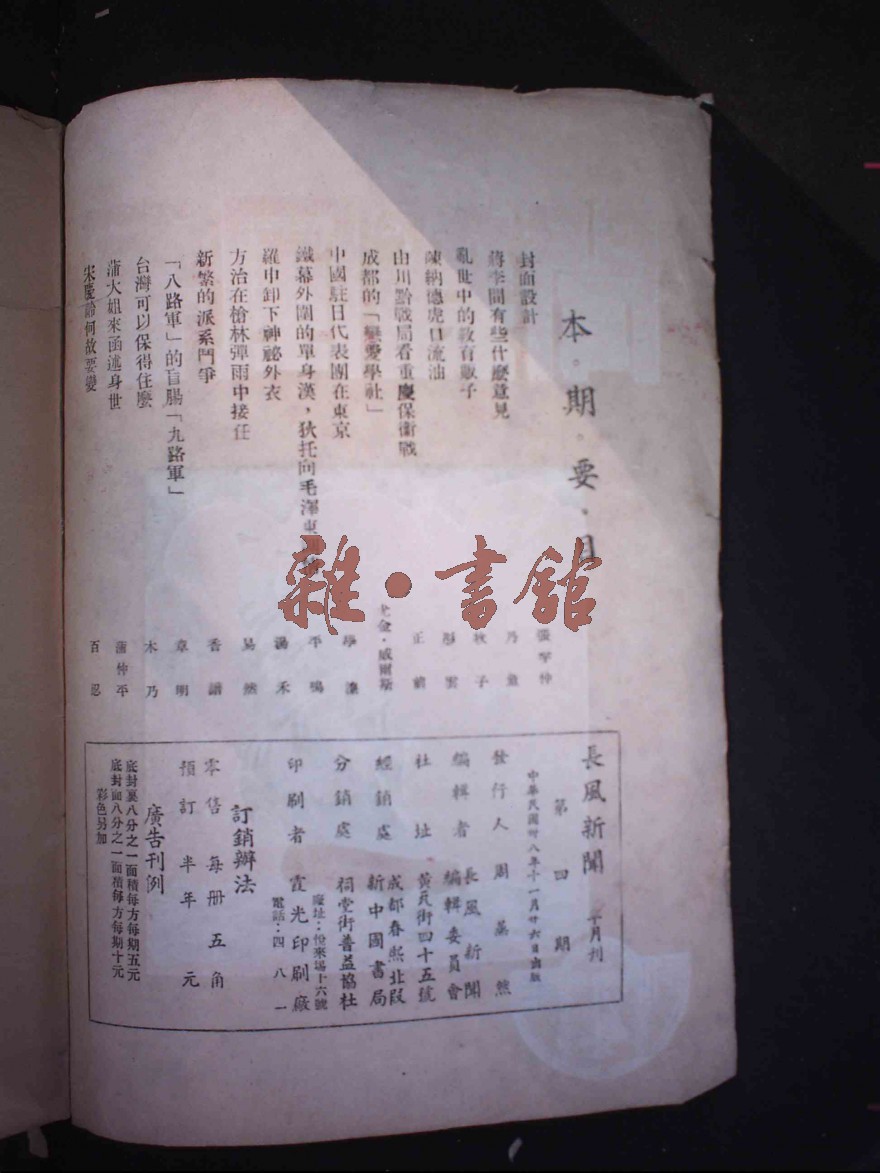 本·期·要·目
封面設計
蔣李間有些什麼意見
亂世中的教育販子
陳納德虎口流油
由川黔戰局看重慶保衛戰
成都的「樂愛學社」
中國駐日代表團在東京
鐵幕外圍的單身漢，狄托向毛澤東
羅中卸下神祕外衣
方治在槍林彈雨中接任
新繁的派系鬥爭
「八路軍」的盲腸「九路軍」
台灣可以保得住麼
蒲大姐來函述身世
宋慶齡何故要變
張 仲
乃
秋子
彭雲
正
尤金·威爾斯
學
平鳴
湯禾
易然
香譜
章明
木乃
蒲仲平
百忍
雜·書館
長風新聞 半月刊
第四期
中華民國卅八年十一月廿六日出版
發行人 周 然
編輯者 長風新聞編輯委員會
社址 黃瓦街四十五號
經銷處 成都春熙北段新中國書局
分銷處 祠堂街普益協社
印刷者 霞光印刷廠
廠址：悅來場十六號
電話：四八一
訂銷辦法
零售 每冊五角
預訂 半年 元
廣告刊例
底封裏八分之一面積每方每期五元
底封面八分之一面積每方每期十元
彩色另加